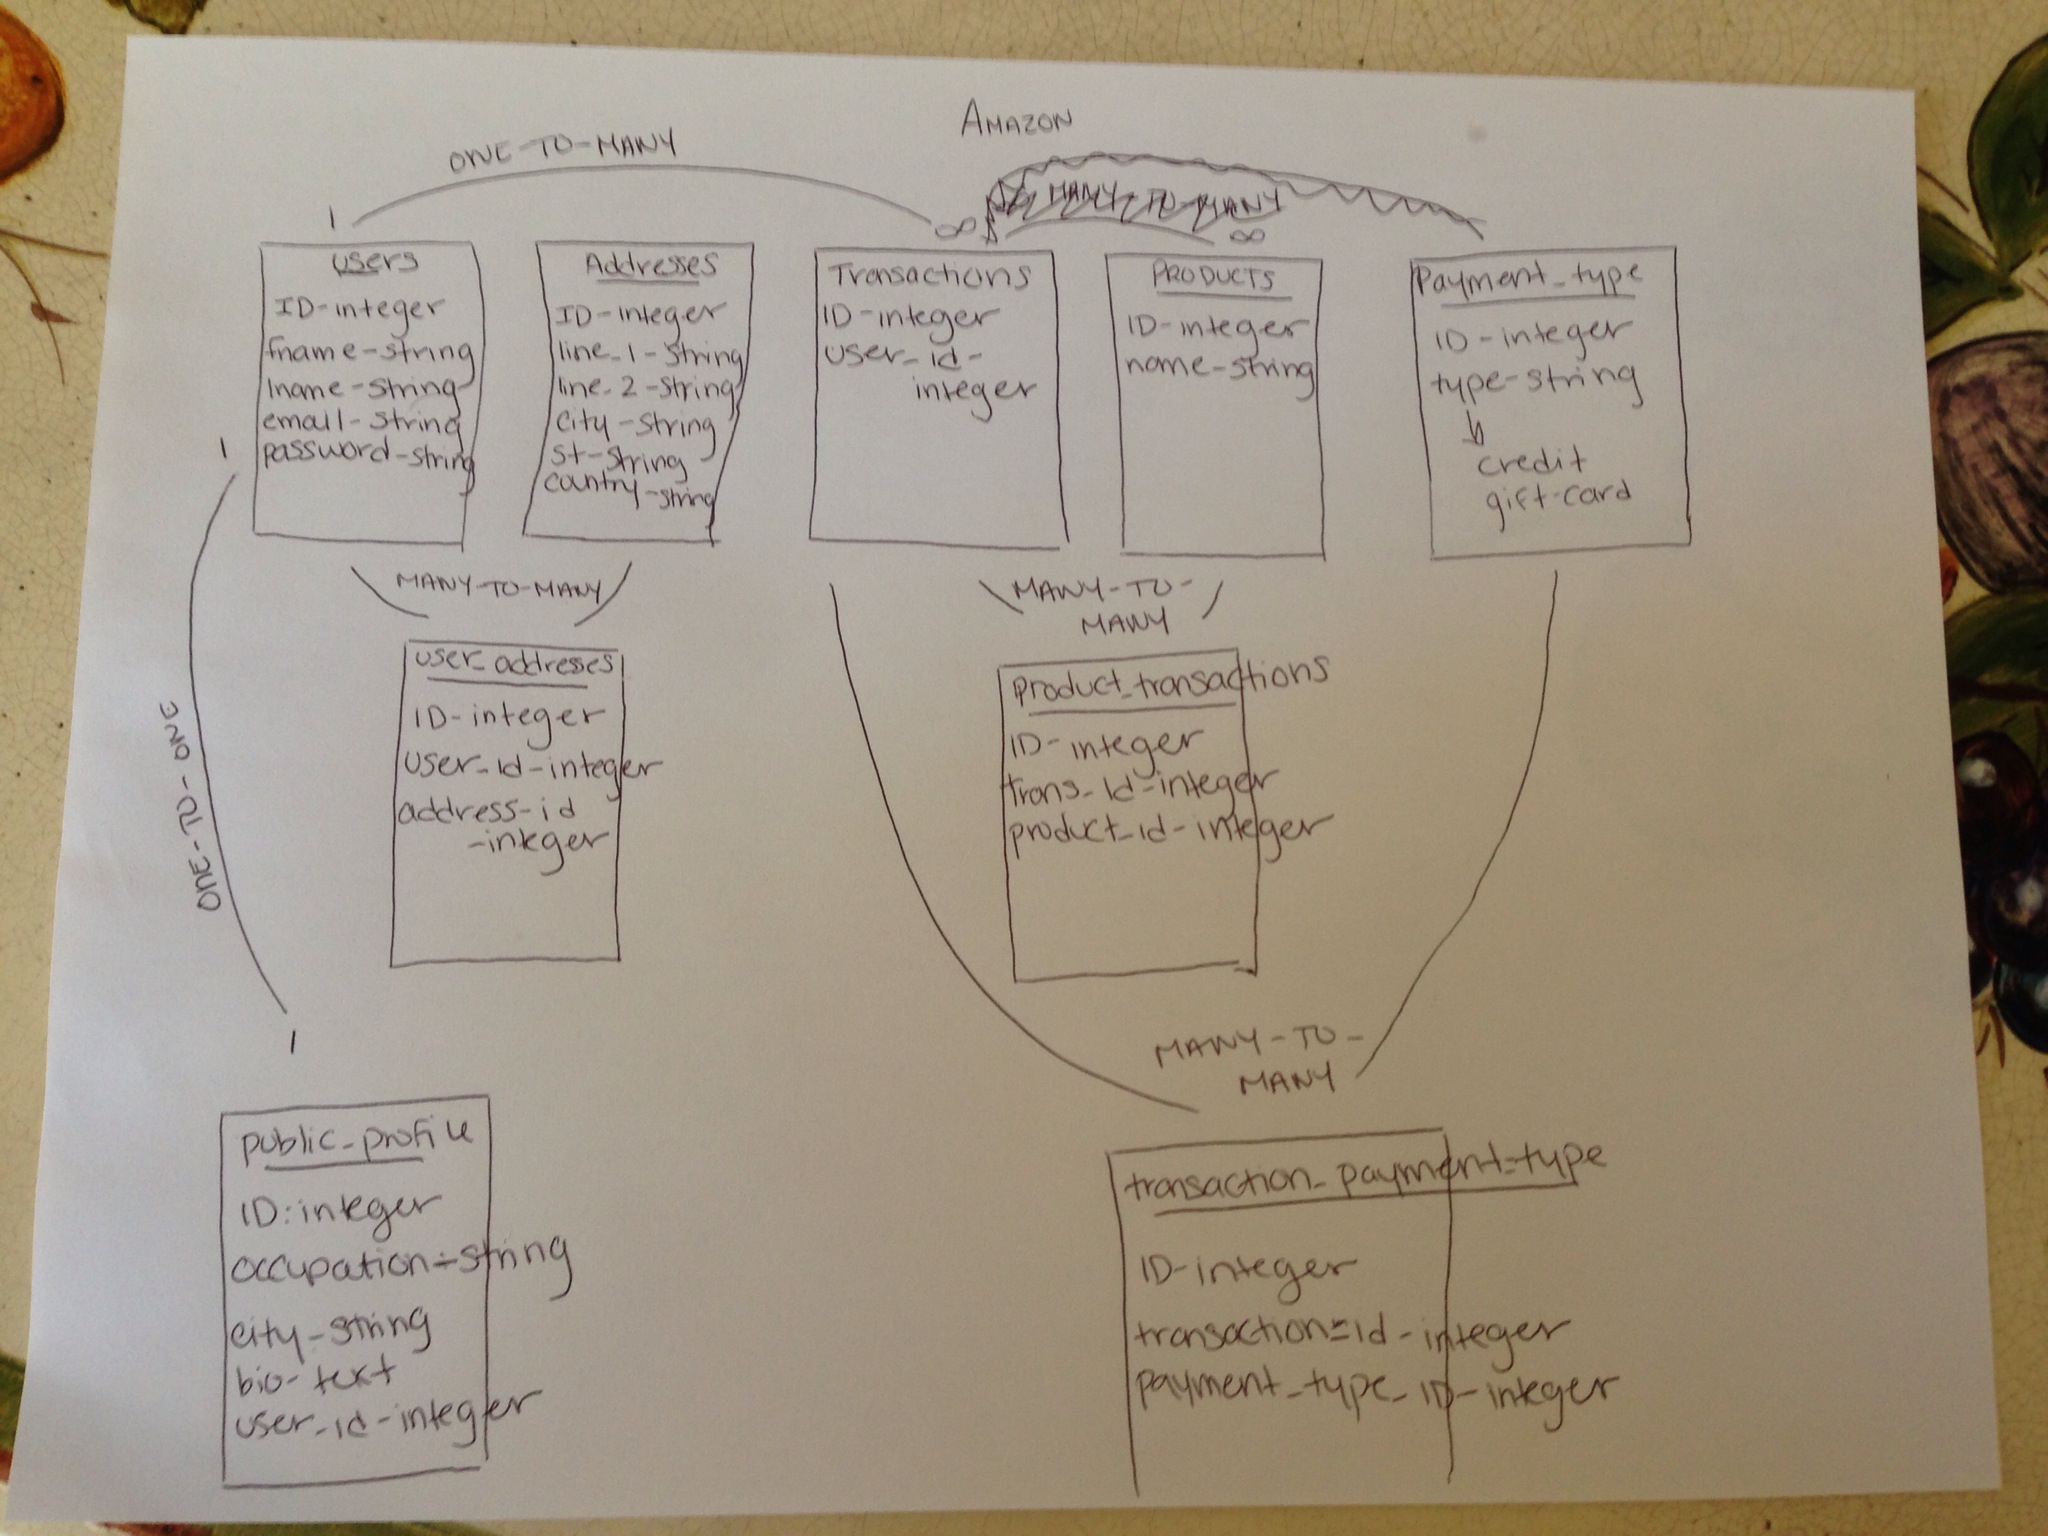 AMAZON
ONE-TO-MANY
MANY-TO-MANY
1
∞
∞
users
ID-integer
fname-string
lname-string
email-string
password-string
Addresses
ID-integer
line_1-string
line_2-string
city-string
st-string
country-string
Transactions
ID-integer
user_id-
integer
PRODUCTS
ID-integer
name-string
Payment_type
ID-integer
type-string
credit
gift-card
1
MANY-TO-MANY
MANY-TO-
MANY
user_addresses
ID-integer
user_id-integer
address-id
-integer
product_transactions
ID-integer
trans_id-integer
product_id-integer
ONE-TO-ONE
1
MANY-TO-
MANY
public_profile
ID:integer
occupation-string
city-string
bio-text
user_id-integer
transaction_payment_type
ID-integer
transaction_id-integer
payment_type_ID-integer